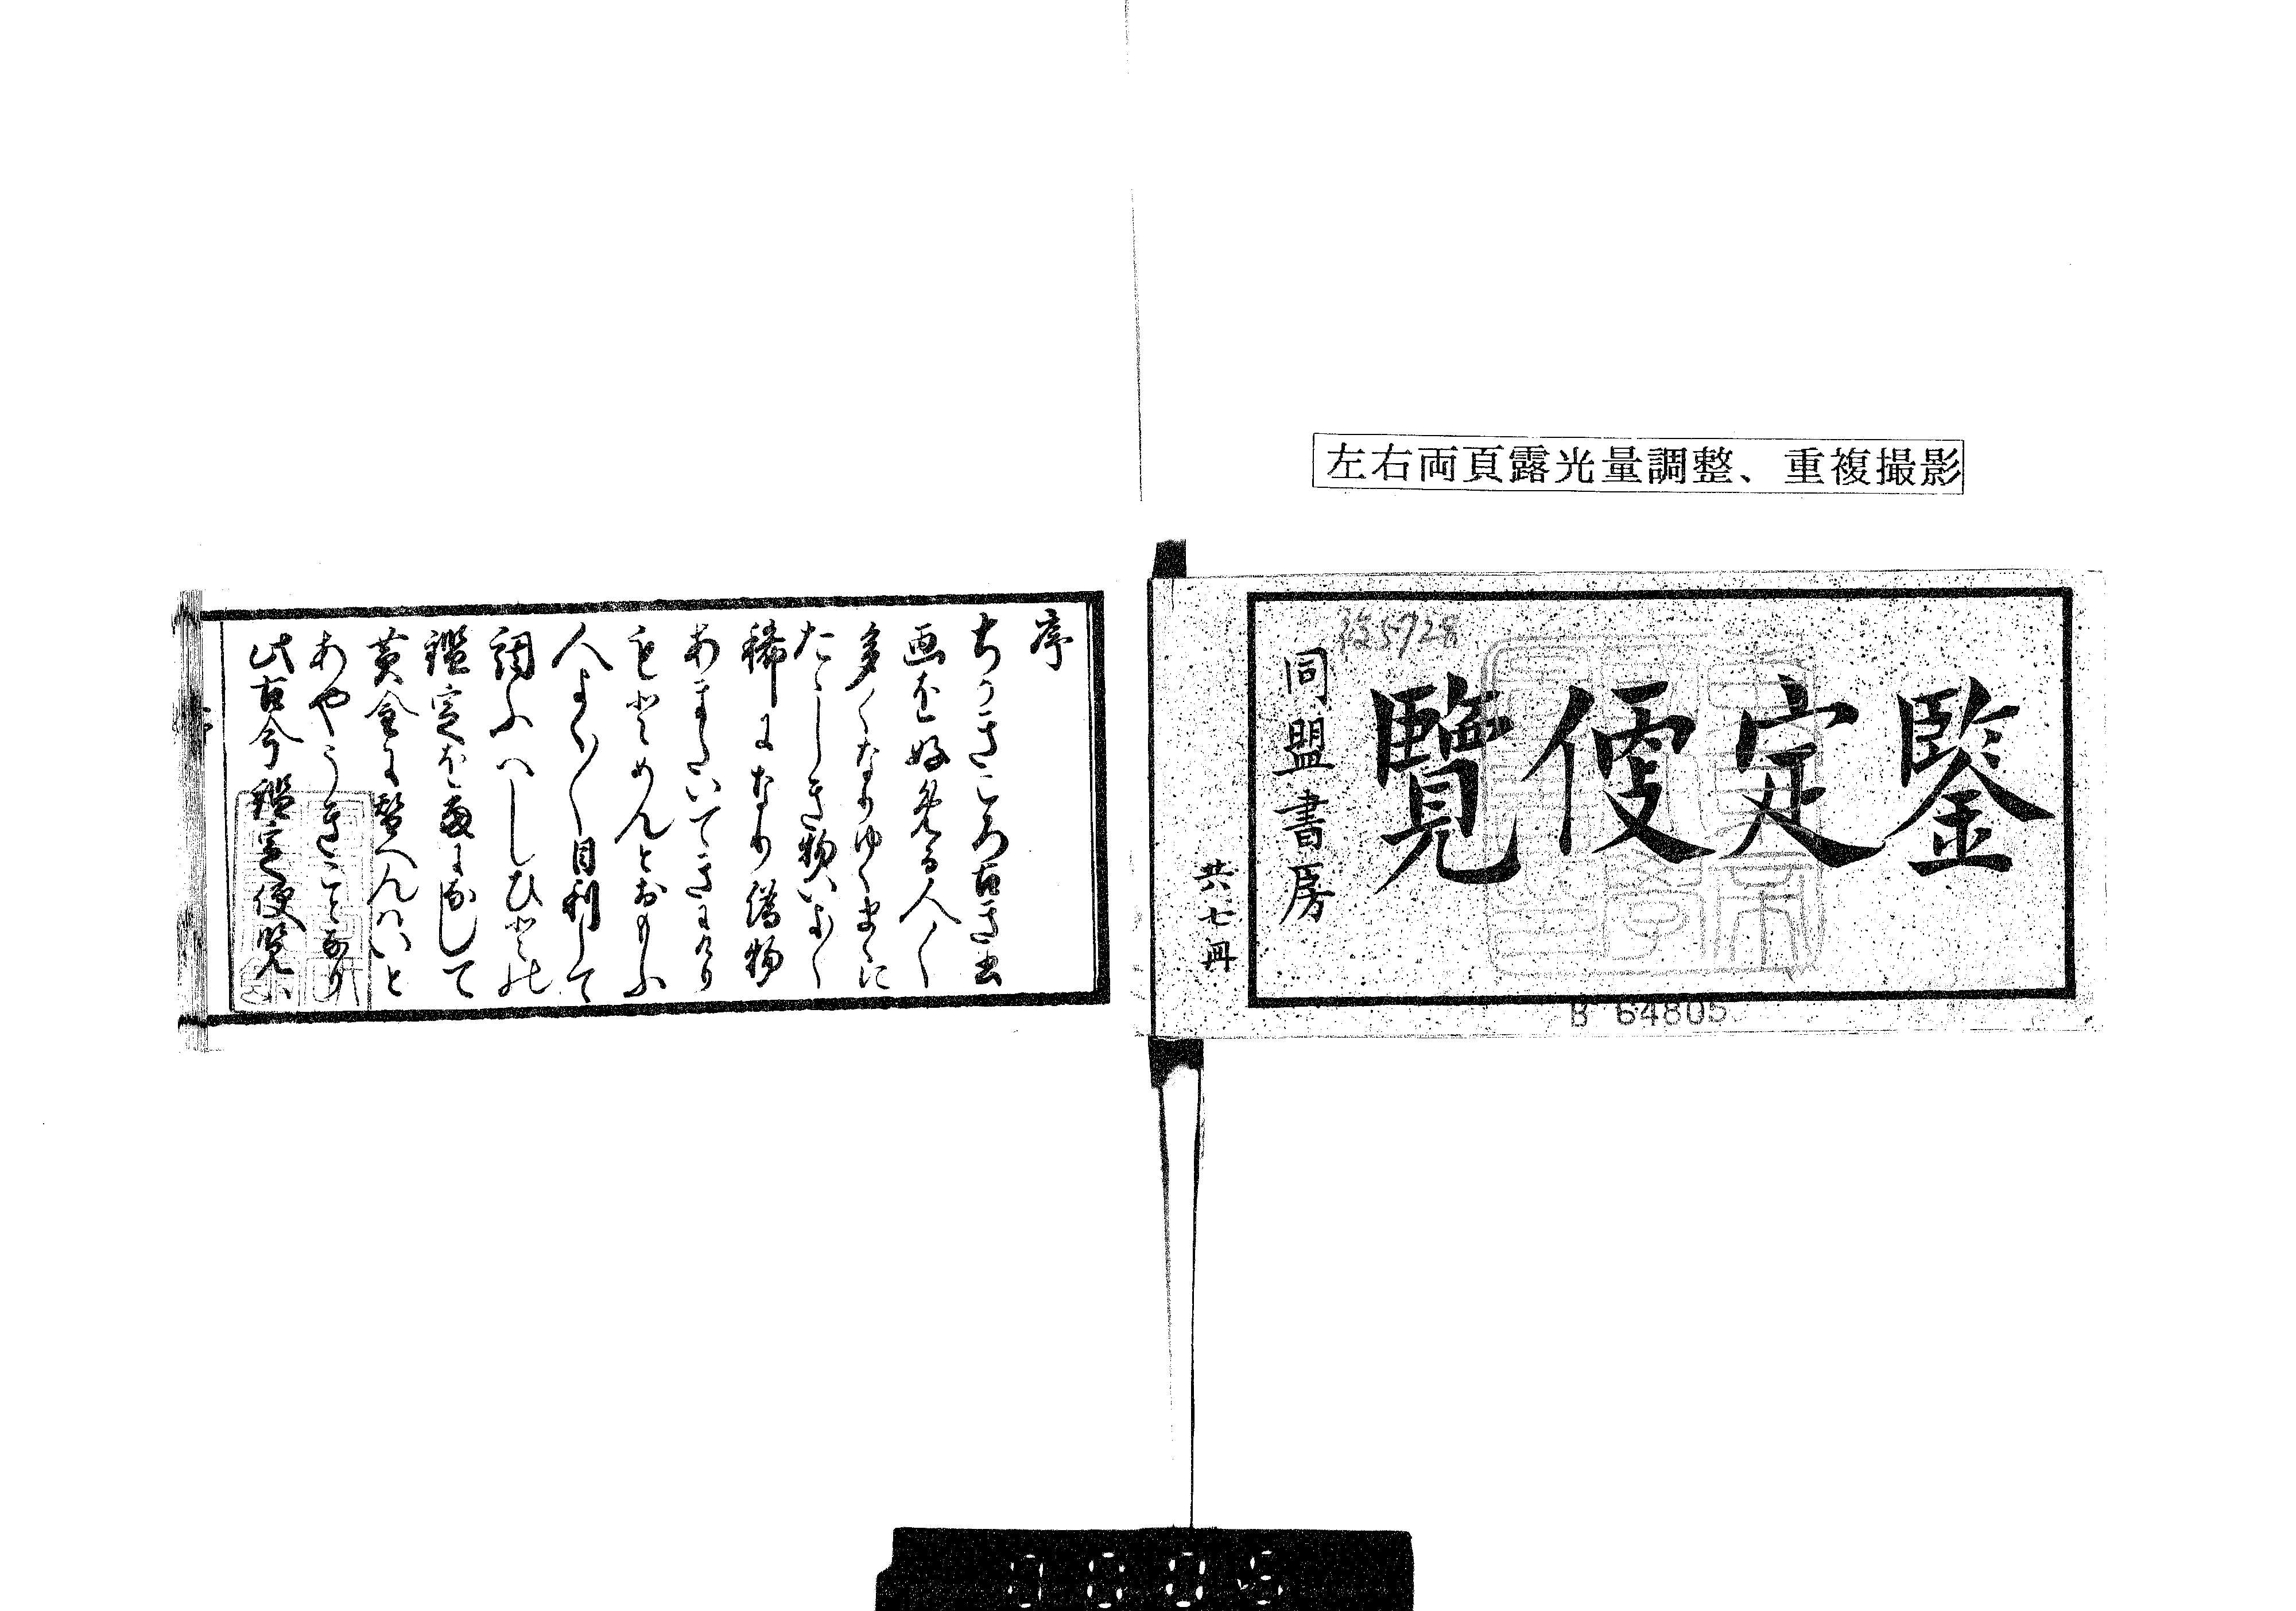 左右両頁露光量調整、重複撮影
鍳定便覽
同盟書房
共七冊
B 64805
序
ちかきころ古き書
画を好める人〱
多くなりゆくまゝに
たゝしき物いよ〱
稀になり偽物
あまたいてきにけり
もとめんとおもふ
人よく〱目利して
調ふへしひとの
鑑定を
黄金に替へんハいと
あやうきことなり
此古今鑑定便覧ハ